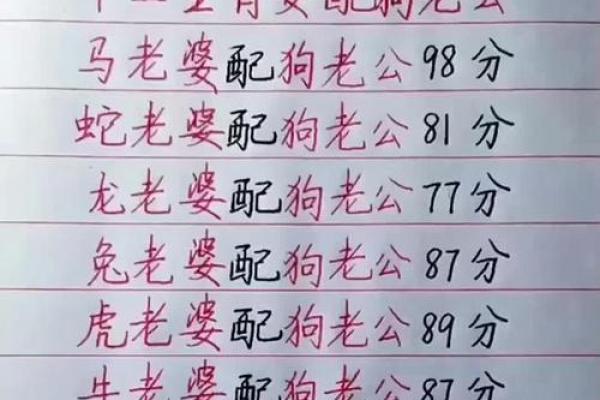 十二生肖女配狗老公
马老婆配狗老公98分
蛇老婆配狗老公81分
龙老婆配狗老公77分
兔老婆配狗老公87分
虎老婆配狗老公89分
牛老婆配狗老公87分